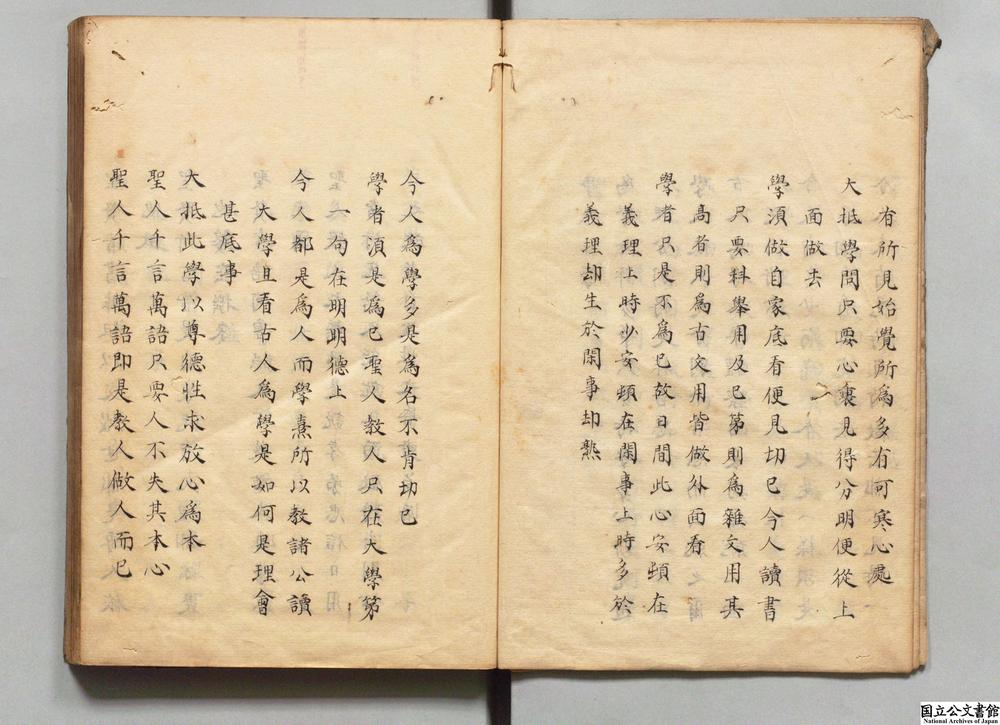 有所見始覺所爲多有可寒心處
大抵學問只要心裏見得分明便從上
面做去
學須做自家底看便見切已今人讀書
只要科舉用及已第則爲雜文用其
高者則爲古文用皆做外面看
學者只是不爲已故日間此心安頓在
義理上時少安頓在閑事上時多於
義理却生於閑事却熟
今人爲學多是爲名不肯切已
學者須是爲已聖人教人只在大學第
一句在明明德上
今人都是爲人而學熹所以教諸公讀
大學且看古人爲學是如何是理會
甚底事
大抵此學以尊德性求放心爲本
聖人千言萬語只要人不失其本心
聖人千言萬語即是教人做人而已
国立公文書館
National Archives of Japan